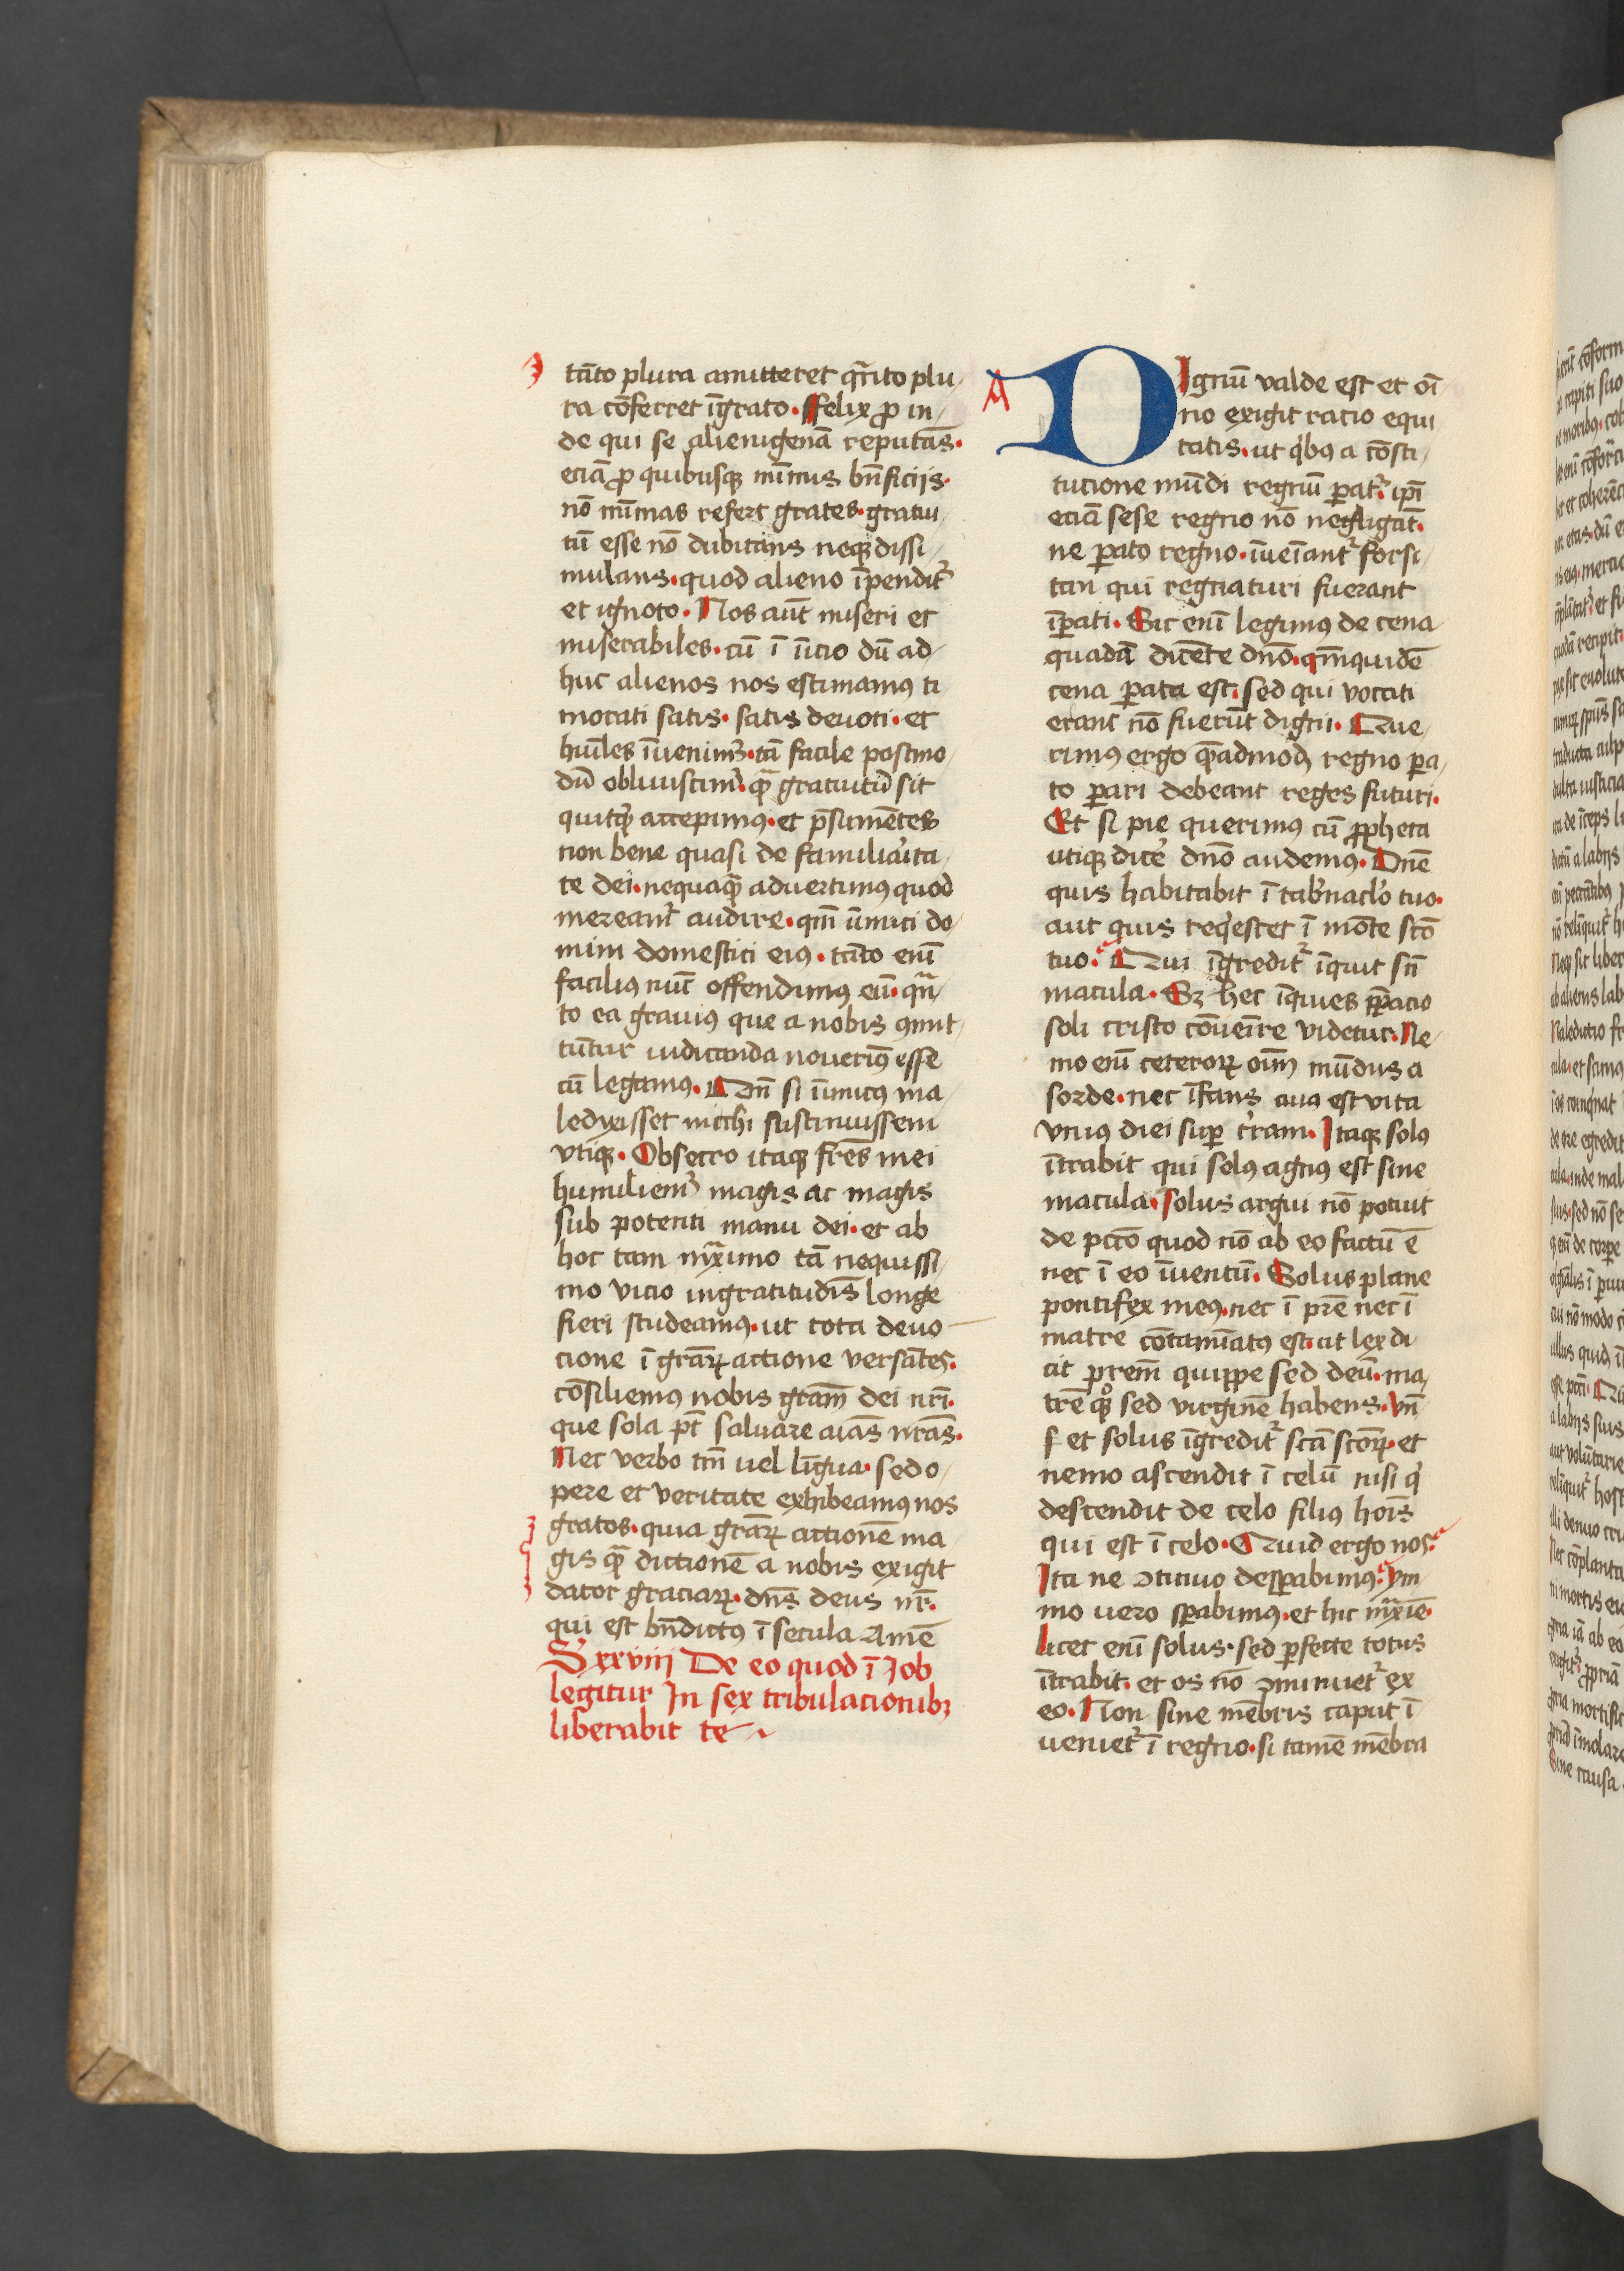 tāto plura amitteret qr̄nto plu
ra cōferret īgrato. ffelix ꝓ in
de qui se alienigenā reputās.
eciā ꝓ quibusqꝫ mīmis bn̄ficiis.
nō mīmas refert grates. gratui
tū esse nō dubitans neqꝫ dissi
mulans. quod alieno īpendit᷑
et ignoto. Nos aūt miseri et
miserabiles. cū ī īicio dū ad
huc alienos nos estimamꝰ ti
morati satis. satis deuoti. et
hūiles īuenimꝰ. tā facile postmo
dū obliuiscimꝰ. qꝫ̄ gratuitū sit
quitqͥd accepimꝰ. et p̄sumētes
non bene quasi de familiarita
te dei. nequaqꝫ̄ aduertimꝰ quod
mereamꝰ audire. qm̄ īimici do
mini domestici eiꝰ. tāto eni̅
faciliꝰ nūc offendimꝰ eū. qn̄
to ea grauiꝰ que a nobis ꝯmit
tūtur iudicanda nouerimꝰ esse
cū legamꝰ. Qm̄ si īimicus ma
ledixisset michi sustinuissem
vtiqꝫ. Obsecro itaqꝫ fr̄es mei
humiliemꝰ magis ac magis
sub potenti manu dei. et ab
hoc tam mꝯximo tā nequissi
mo vicio ingratitudīs longe
fieri studeamꝰ. ut tota deuo
cione ī gr̄aꝝ actione versātes.
cōsiliemus nobis gr̄am dei nr̄i.
que sola pt̄ saluare aīas nr̄as.
Nec verbo tm̄ uel līgua. sed o
pere et veritate exhibeamꝰ nos
gratos. quia gr̄aꝝ actionē ma
gis qꝫ̄ dictionē a nobis exigit
dator graciaꝝ. dn̄s deus nr̄.
qui est bn̄dictꝰ ī secula Amē
S xxviij De eo quod ī Job
legitur In sex tribulacionibꝫ
liberabit te
A DIgnū valde est et oī
no exigit racio equi
tatis. ut qͥbꝰ a cōsti
tucione mūdi regnū ꝑat᷑. ipī
eciā sese regno nō negligāt.
ne ꝑato regno. īueīant᷑ forsi
tan qui regnaturi fuerant
īꝑati. Sic enī legimꝰ de cena
quadā dicēte dnō. qm̄quidē
cena ꝑata est. sed qui vocati
erant nō fuerūt digni. Que
rimꝰ ergo qꝫ̄admodꝫ regno ꝑa
to ꝑari debeant reges futuri.
Et si pie querimꝰ cū ꝓpheta
utiqꝫ dicē dnō audemꝰ. Dnē
quis habitabit ī tab̄nacl̄o tuo.
aut quis reqͥescet ī mōte scō
tuo. Qui īgredit᷑ īquit sn̄
macula. Sꝫ hec īquies ꝑꝑacio
soli cristo cōueīre videtur. Ne
mo enī ceteroꝝ oīm mūdus a
sorde. nec īfans cuiꝰ est vita
vniꝰ diei suꝑ t̄ram. Itaqꝫ solꝰ
ītrabit qui solꝰ agnꝰ est sine
macula. Solus argui nō potuit
de pctō quod nō ab eo factū ē
nec ī eo īuentū. Solus plane
pontifex meꝰ. nec ī pr̄e nec ī
matre cōtamīatꝰ est. ut lex di
cit pr̄em quippe sed deū. ma
trē qͦꝫ sed virginē habens. vn̄
ſ et solus īgredit᷑ scā scōꝝ. et
nemo ascendit ī celū nisi qͥ
descendit de celo filius hoīs
qui est ī celo. Quid ergo nos.
Ita ne ꝯtinuo desꝑabimꝰ. ym
mo uero sꝑabimꝰ. et hic mꝯximē.
licet enī solus. sed ꝑfecte totus
ītrabit. et os nō ꝯminuet᷑ ex
eo. Non sine mēbris caput ī
ueniet᷑ ī regno. si tamē mēbra